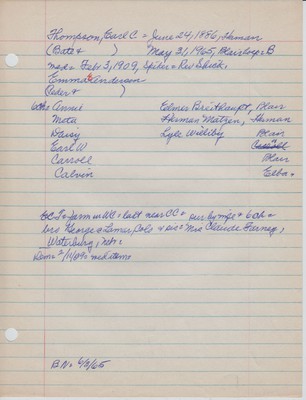 Thompson, Earl C = June 24, 1886, Herman
(Bets & ) May 31, 1965, Blairhosp = B
mar = Feb. 3, 1909, Spiker = Rev
Emma Anderson
(Peder & )
6 ch = Annie Elmer Breitkaupt, Blair
Meta Herman Matzen, Herman
Daisy Lyle Williby Blair
Earl W
Carroll Blair
Calvin Elba.
OC To farm in WC = last near CC = sur. by wife & 6 ch =
bro George = Lamar, Colo & sis = Mrs Claude Farney,
Waterbury, Nebr.
items
BN = 6/2/65